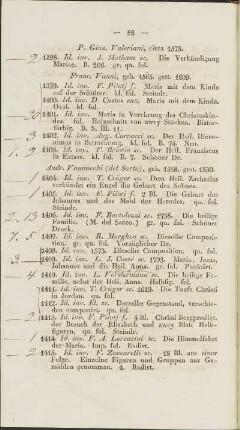 — 88 —
P. Gius. Valeriani, circa 1575.
1398. Id. inv. J. Matham sc. Die Verkündigung
Mariae. B. 206. gr. qu. fol.
Franc. Vanni, geb. 1565. gest. 1609.
1399. Id. inv. F. Pilatj f. Maria mit dem Kinde
auf der Schulter. kl. fol. Steindr.
1400. Id. inv. D Custos exc. Maria mit dem Kinde.
Oval. kl. fol.
1401. Id. inv. Maria in Verehrung des Christuskin-
des. fol. Holzschnitt von zwey Stöcken. Bister-
färbig. B. S. III.
1402. Id. inv. Aug. Carracci sc. Der heil. Hiero-
nimus in Betrachtung. kl. fol. B. 74.
1403. Id. inv. F. sc. Der heil. Franciscus
in Extase. kl. fol. B. 7. Schöner Dr.
Andr. Vannucchi (del Sarto), geb. 1488. gest. 1530.
1404. Id. inv. T. Crüger sc. Dem Heil. Zacharias
verkündet ein Engel die Geburt des Sohnes.
1405. Id. inv. F. Pilatj f. Die Geburt des
Johannes und das Mahl des Herodes. qu. fol.
Steindr.
1406. Id. inv. F. Bartolozzi sc. Die heilige
Familie. (M. del Sacco.) gr. qu. fol. Schöner
Druck.
1407. Id. inv. R. Morghen sc. Dieselbe Composi-
tion. gr. qu. fol. Vorzüglicher Dr.
1408. Id. inv. 1573. Dieselbe Composition. qu. fol.
1409. Id. inv. L. J. sc. 1793. Maria, Jesus,
Johannes und die Heil. Anna. gr. fol. Punktirt.
1410. Id. inv. L. sc. Die heilige Fa-
milie, nebst der heil. Anna. Halbfig. fol.
1411. Id. inv. T. Crüger sc. 1618. Die Taufe Christi
im Jordan. qu. fol.
1412. Id. inv. sc. Derselbe Gegenstand, verschie-
den componirt. qu. fol.
1413. Id. inv. F. Pilatj f. 4 Bl. Christi Bergpredigt.
der Besuch der Elisabeth und zwey Blatt Halb-
figuren. qu. fol. Steindr.
1414. Id. inv. F. A. Lorenzini sc. Die Himmelfahrt
der Maria. Imp. fol. Radirt.
1415. Id. inv. F. Zuccarelli sc. Bl. aus einer
Folge. Einzelne Figuren und Gruppen aus Ge-
mälden genommen. 4. Radirt.